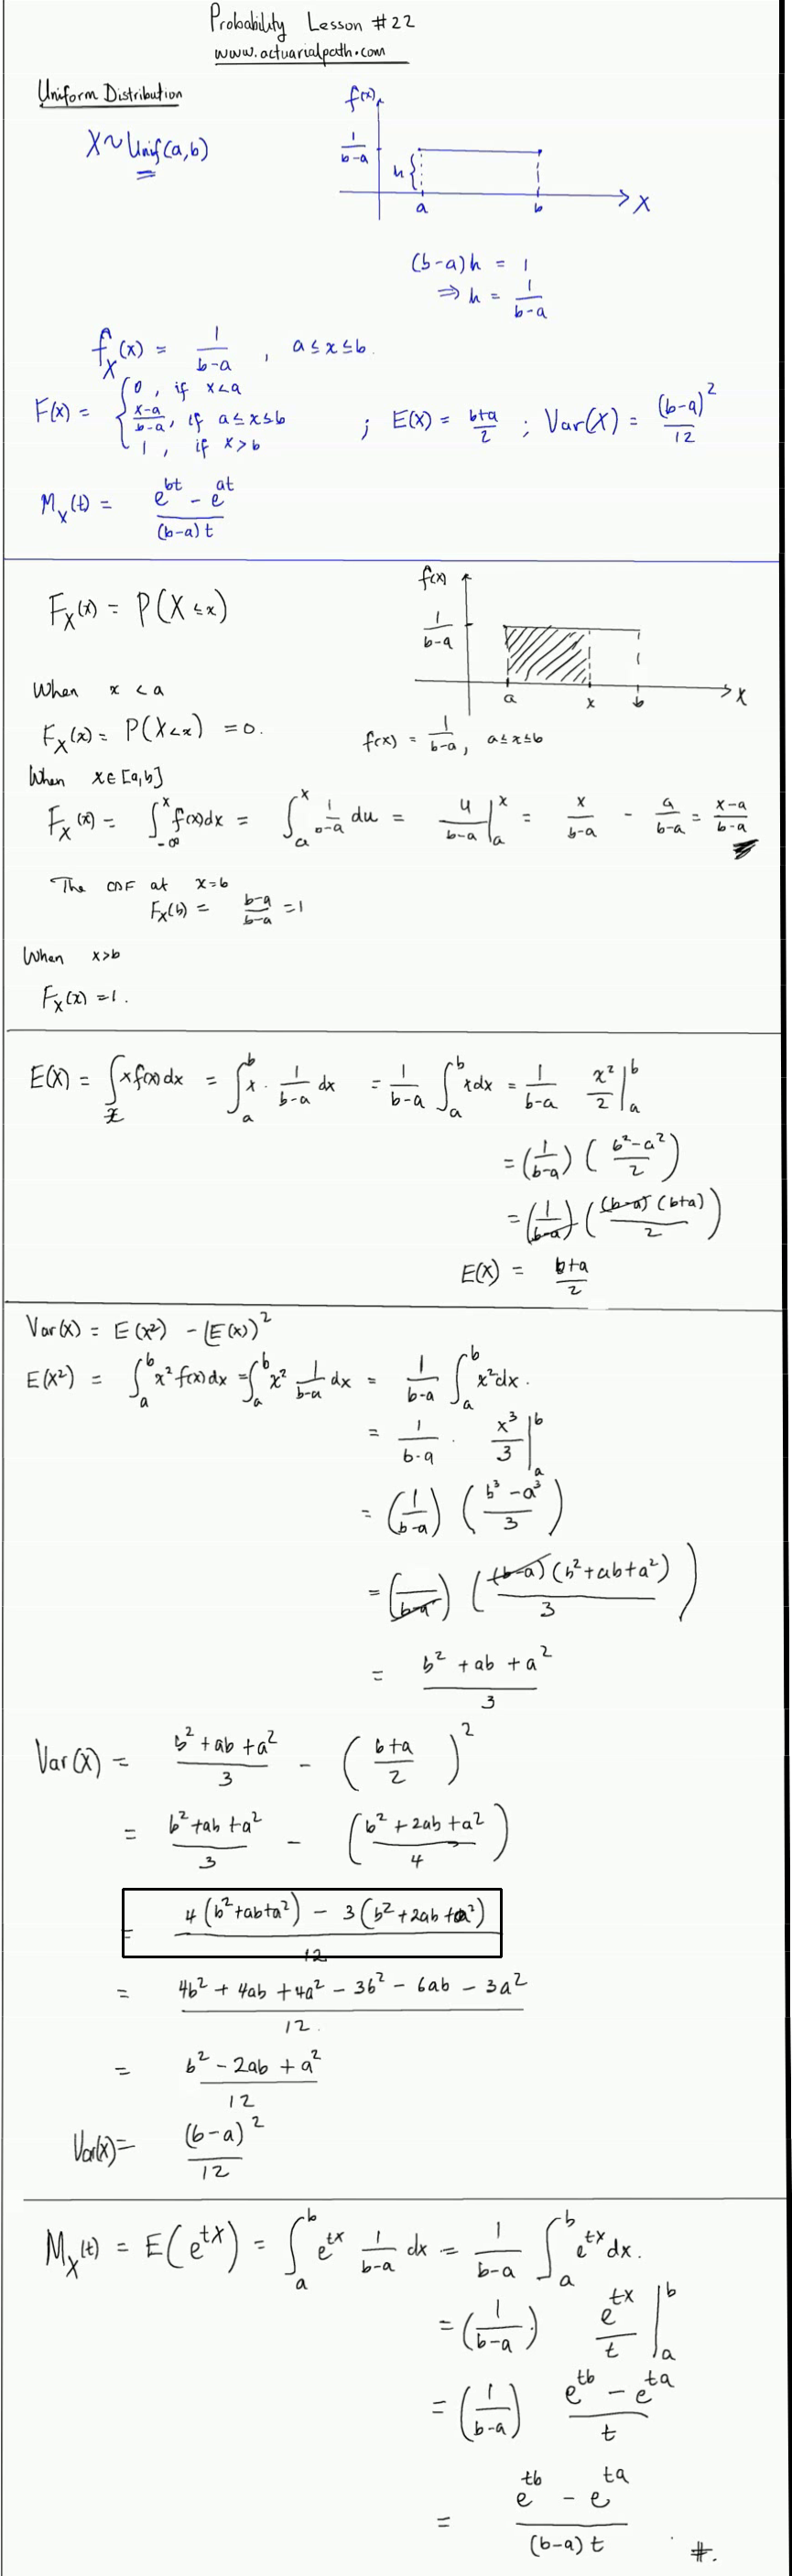 Probability Lesson #22
www.actuarialpath.com
Uniform Distribution
X ~ Unif(a,b)
f(x)
1/(b-a)
h{
a b X
(b-a)h = 1
⇒ h = 1/(b-a)
f_X(x) = 1/(b-a) , a ≤ x ≤ b.
F(x) = { 0 , if x<a
(x-a)/(b-a), if a ≤ x ≤ b ; E(X) = (b+a)/2 ; Var(X) = (b-a)^2/12
1 , if x>b
M_X(t) = (e^bt - e^at)/((b-a)t)
F_X(x) = P(X ≤ x)
f(x)
1/(b-a)
a x b X
When x < a
F_X(x) = P(X<x) = 0.
f(x) = 1/(b-a), a ≤ x ≤ b
When x ∈ [a,b]
F_X(x) = ∫_{-∞}^{x} f(x)dx = ∫_a^x 1/(b-a) du = u/(b-a) |_a^x = x/(b-a) - a/(b-a) = (x-a)/(b-a)
The CDF at x=b
F_X(b) = (b-a)/(b-a) = 1
When x>b
F_X(x) = 1.
E(X) = ∫_x x f(x) dx = ∫_a^b x · 1/(b-a) dx = 1/(b-a) ∫_a^b x dx = 1/(b-a) x^2/2 |_a^b
= (1/(b-a)) ((b^2-a^2)/2)
= (1/(b-a)) ((b-a)(b+a)/2)
E(X) = (b+a)/2
Var(X) = E(X^2) - (E(X))^2
E(X^2) = ∫_a^b x^2 f(x) dx = ∫_a^b x^2 1/(b-a) dx = 1/(b-a) ∫_a^b x^2 dx.
= 1/(b-a) · x^3/3 |_a^b
= (1/(b-a)) ((b^3 - a^3)/3)
= (1/(b-a)) ((b-a)(b^2+ab+a^2)/3)
= (b^2 + ab + a^2)/3
Var(X) = (b^2+ab+a^2)/3 - ((b+a)/2)^2
= (b^2+ab+a^2)/3 - ((b^2+2ab+a^2)/4)
= (4(b^2+ab+a^2) - 3(b^2+2ab+a^2))/12
= (4b^2 + 4ab + 4a^2 - 3b^2 - 6ab - 3a^2)/12.
= (b^2 - 2ab + a^2)/12
Var(X) = (b-a)^2/12
M_X(t) = E(e^tX) = ∫_a^b e^tx 1/(b-a) dx = 1/(b-a) ∫_a^b e^tx dx.
= (1/(b-a)) e^tx/t |_a^b
= (1/(b-a)) (e^tb - e^ta)/t
= (e^tb - e^ta)/((b-a)t) #.